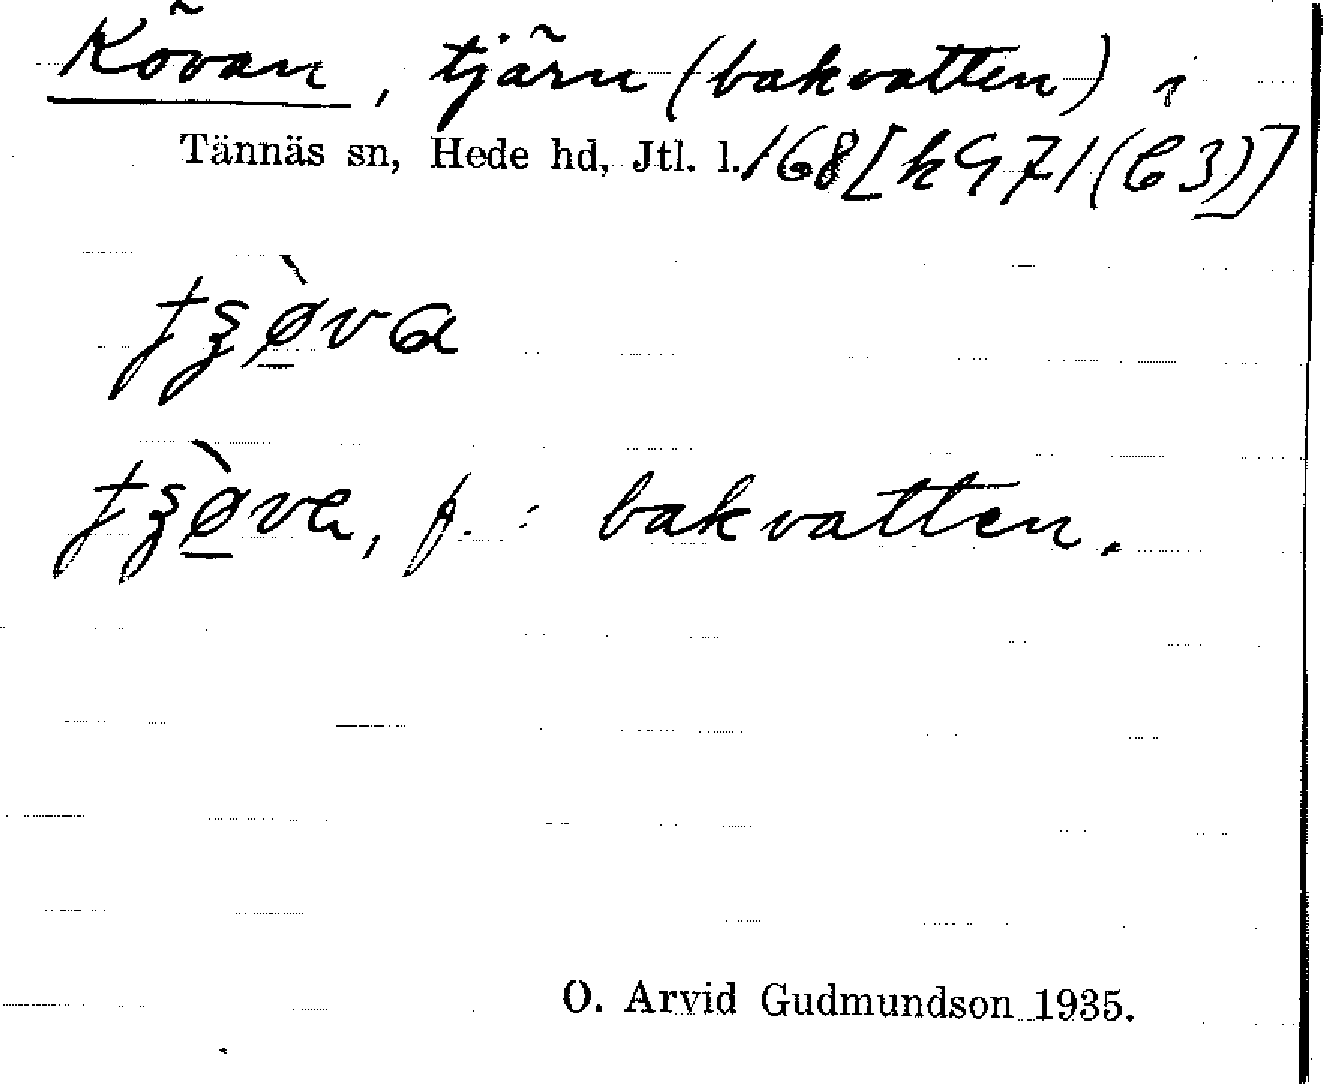 Kövan, tjärn (bakvatten) i
Tännäs sn, Hede hd, Jtl. l. 168 [k971 (C3)]
bakvatten.
O. Arvid Gudmundson 1935.